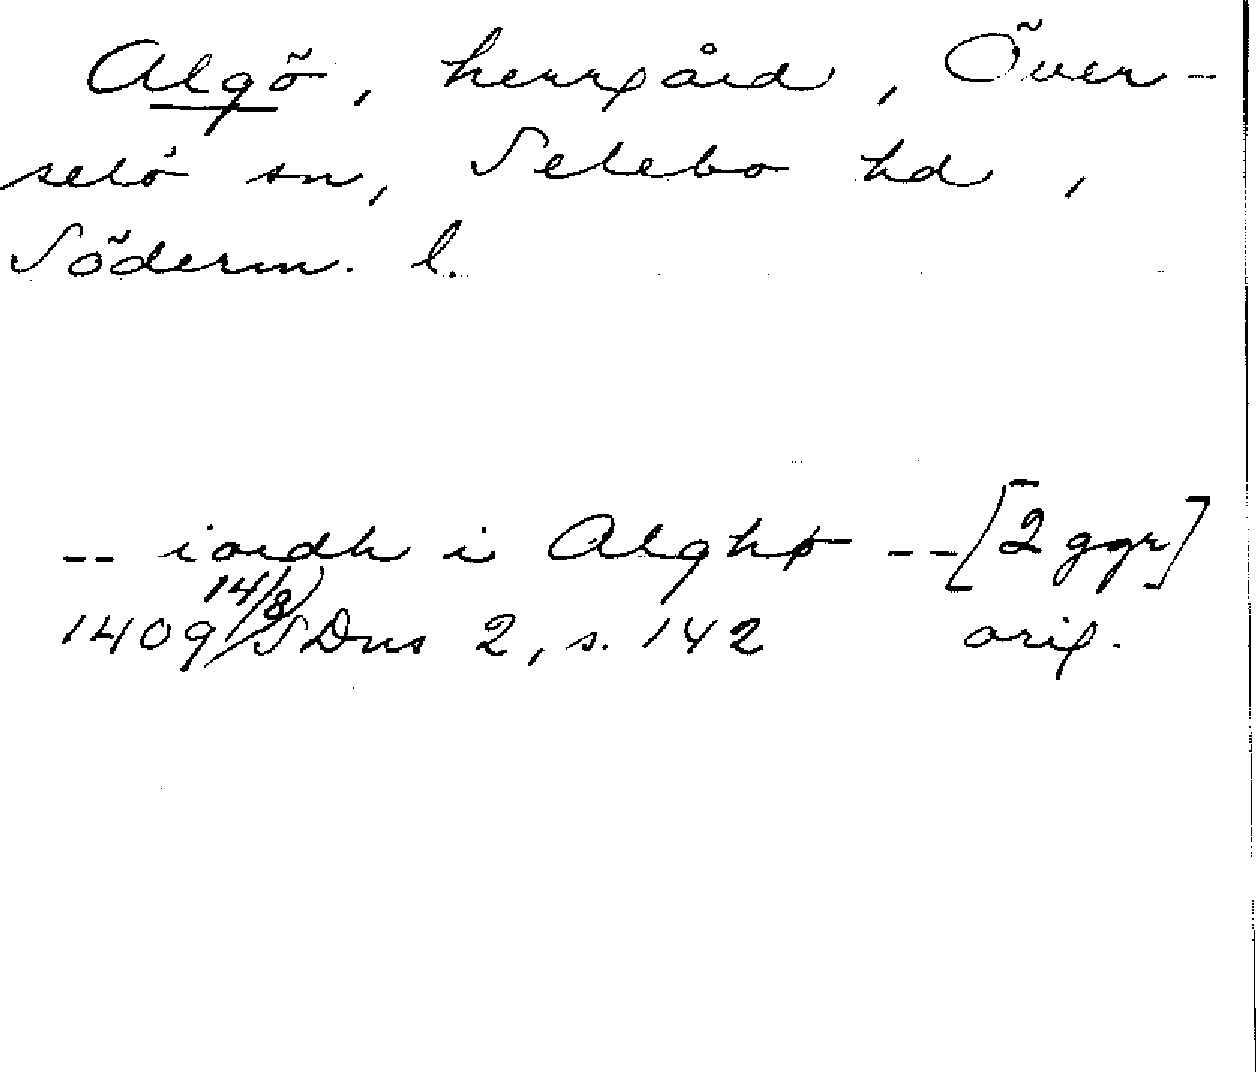 Algö, herrgård, Över-
selö sn, Selebo hd,
Söderm. l.
-- iordh i Alghø -- [2 ggr]
1409 14/8 SDns 2, s. 142 orig.